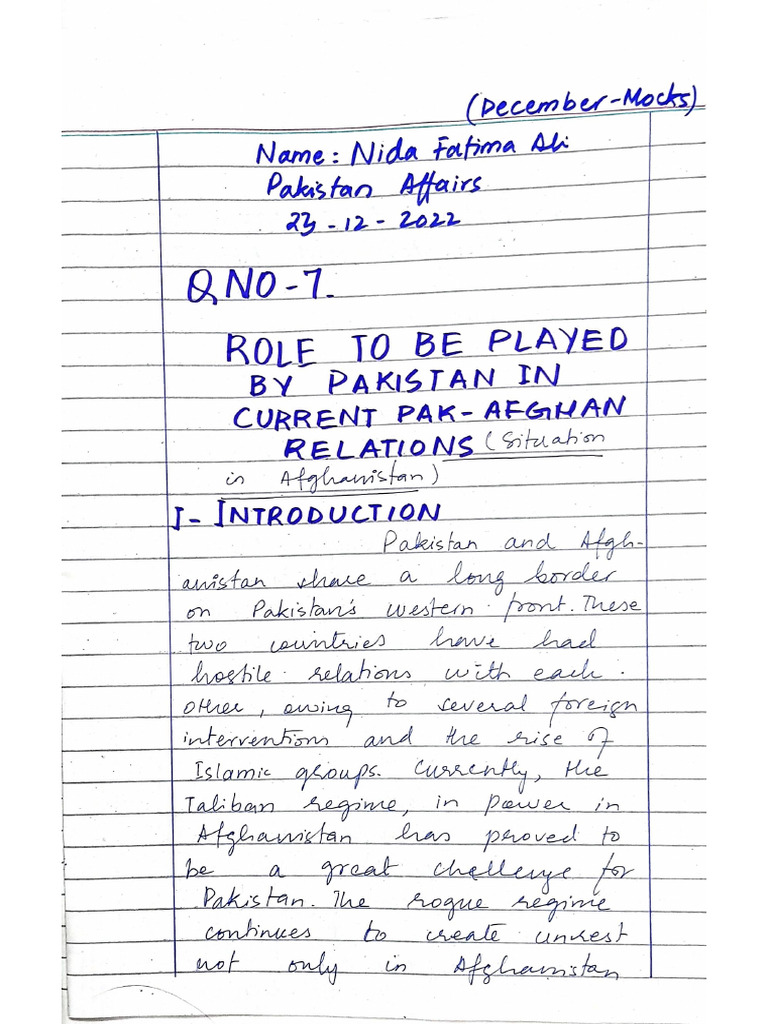 (December-Mocks)
Name: Nida Fatima Ali
Pakistan Affairs
23-12-2022
QNO-7.
ROLE TO BE PLAYED
BY PAKISTAN IN
CURRENT PAK-AFGHAN
RELATIONS (Situation
in Afghanistan)
I- INTRODUCTION
Pakistan and Afgh-
anistan share a long border
on Pakistan's western front. These
two countries have had
hostile relations with each
other, owing to several foreign
interventions and the rise of
Islamic groups. Currently, the
Taliban regime, in power in
Afghanistan has proved to
be a great challenge for
Pakistan. The rogue regime
continues to create unrest
not only in Afghanistan